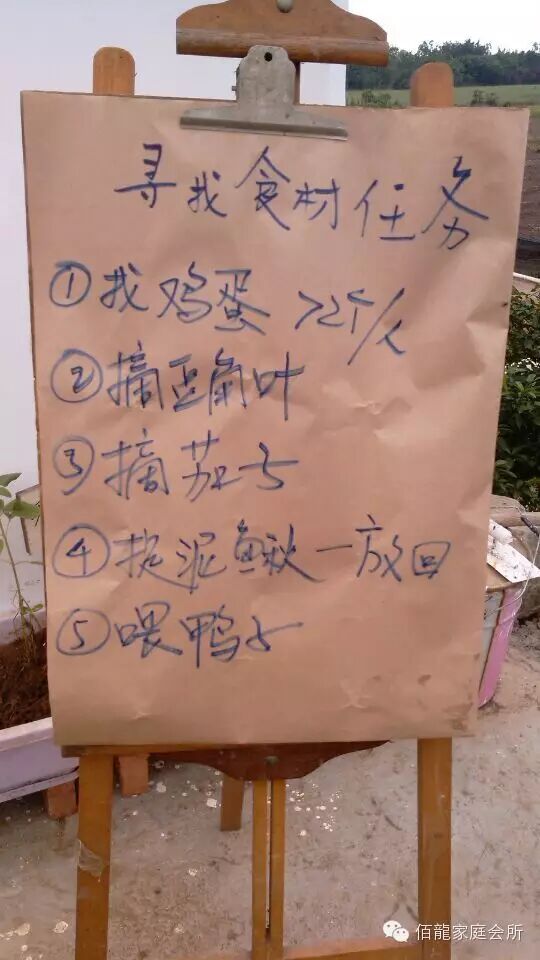 寻找食材任务
①找鸡蛋 >2个/人
②摘豆角叶
③摘茄子
④捉泥鳅—放回
⑤喂鸭子
佰龍家庭会所